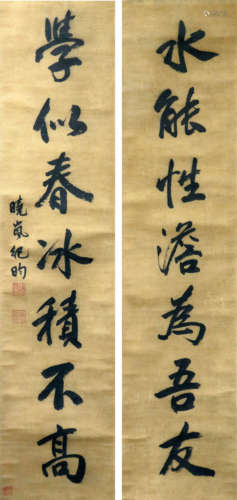 水能性澹為吾友
學似春冰積不高
曉嵐紀昀